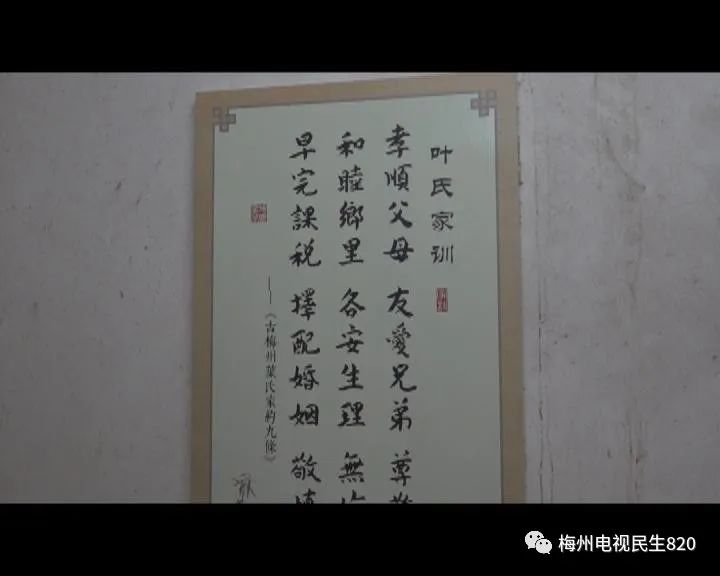 叶氏家训
孝順父母 友愛兄弟 尊
和睦鄉里 各安生理 無
早完課稅 擇配婚姻 敬
——《古梅州葉氏家約九條》
梅州电视民生820